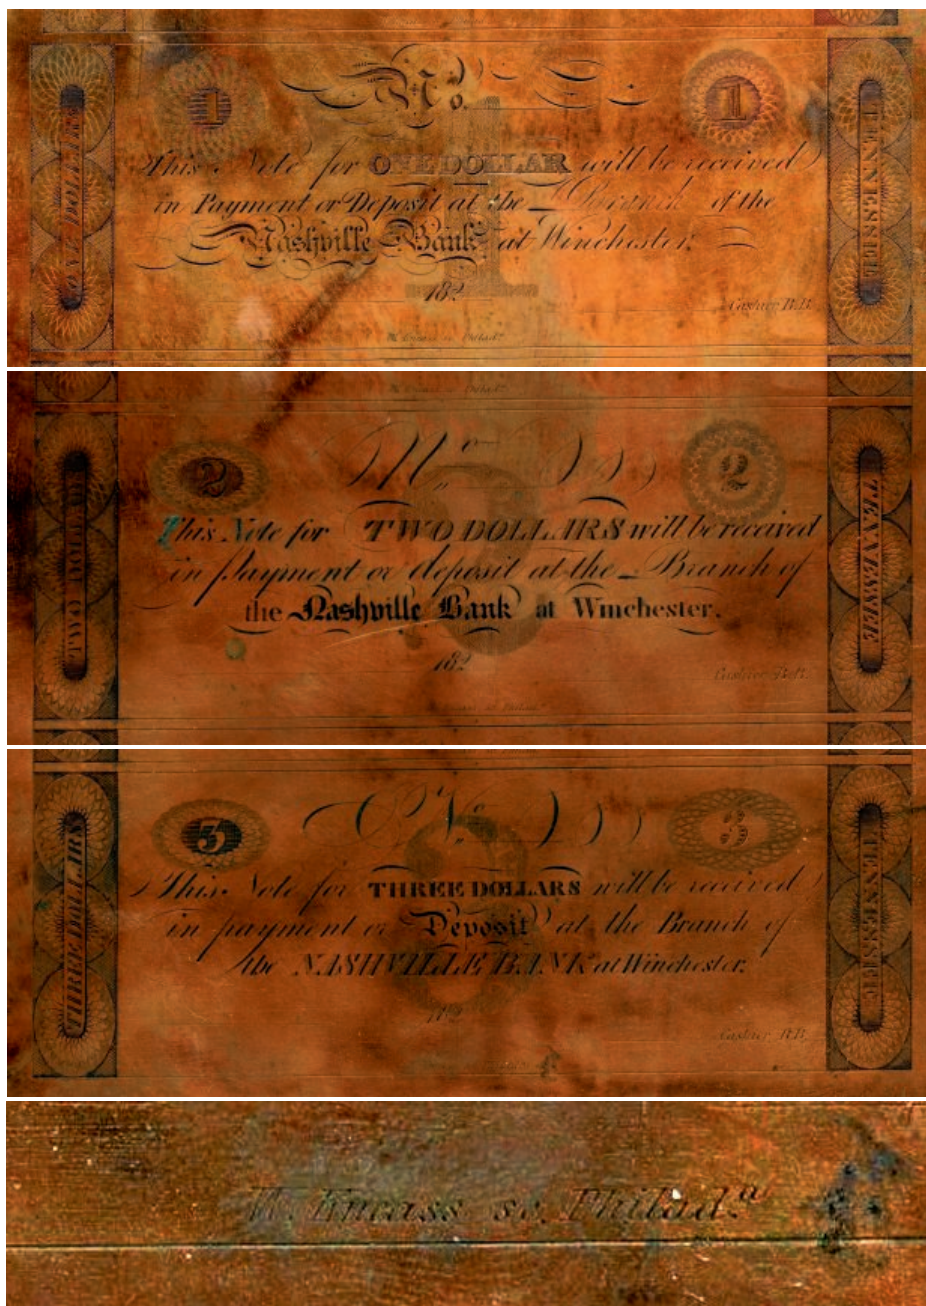 ONE DOLLAR
1
No.
1
TENNESSEE
This Note for ONE DOLLAR will be received
in Payment or Deposit at the Branch of the
Nashville Bank at Winchester.
182
Cashier B.B.
TWO DOLLARS
2
No.
2
TENNESSEE
This Note for TWO DOLLARS will be received
in payment or deposit at the Branch of
the Nashville Bank at Winchester.
182
Cashier B.B.
THREE DOLLARS
3
No.
3
TENNESSEE
This Note for THREE DOLLARS will be received
in payment or Deposit at the Branch of
the NASHVILLE BANK at Winchester.
182
Cashier B.B.
W. Kneass sc. Philad.a